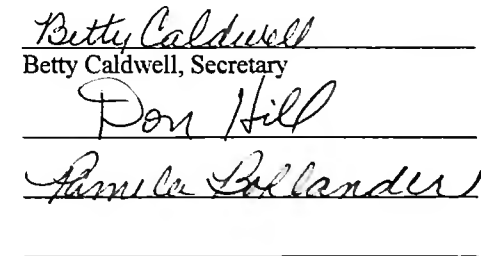 Betty Caldwell
Betty Caldwell, Secretary
Don Hill
Pamela Bollander